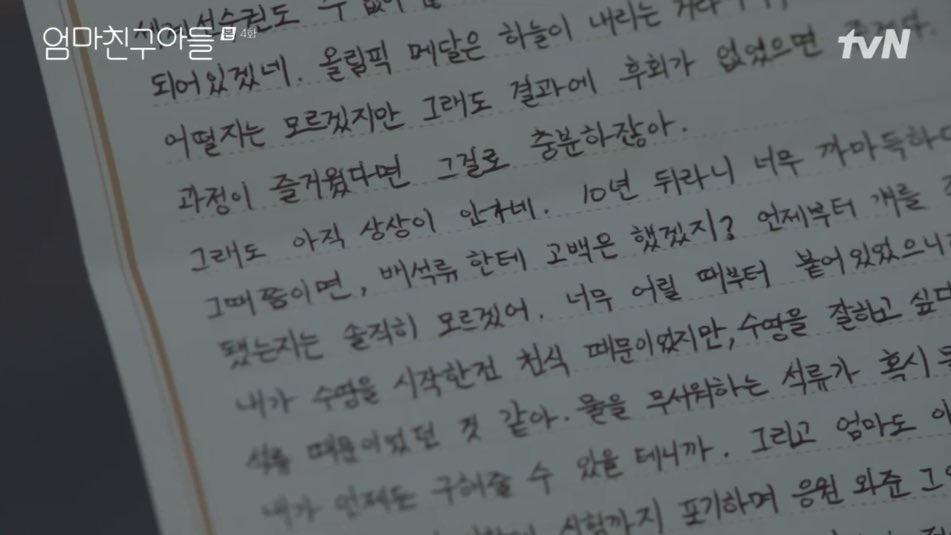 엄마친구아들 4화
tvN
되어있겠네. 올림픽 메달은 하늘이 내리는
어떨지는 모르겠지만 그래도 결과에 후회가 없었으면 좋겠다.
과정이 즐거웠다면 그걸로 충분하잖아.
그래도 아직 상상이 안가네. 10년 뒤라니 너무 까마득하
그때쯤이면, 배석류한테 고백은 했겠지? 언제부터 걔를
됐는지는 솔직히 모르겠어. 너무 어릴 때부터 붙어있었으니
내가 수영을 시작한건 천식 때문이었지만, 수영을 잘하고 싶
석류 때문이었던 것 같아. 물을 무서워하는 석류가 혹시
내가 언제든 구해줄 수 있을 테니까. 그리고 엄마도
시험까지 포기하며 응원 와준